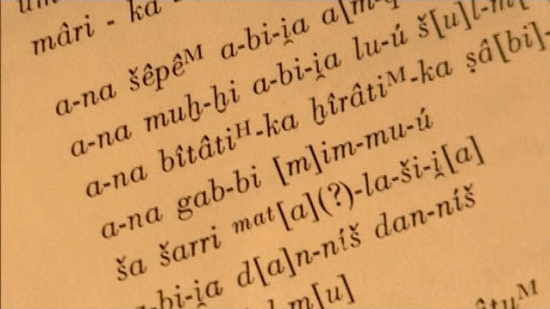 mâri - ka
a-na šêpêᴹ a-bi-i̯a a[m-
a-na muḫ-ḫi a-bi-i̯a lu-ú š[u]l-m[
a-na bîtâtiᴴ-ka ḫîrâtiᴹ-ka ṣâ[bi]-
a-na gab-bi [m]im-mu-ú
ša šarri mat[a](?)-la-ši-i̯[a]
-bi-i̯a d[a]n-níš dan-níš
m[u]